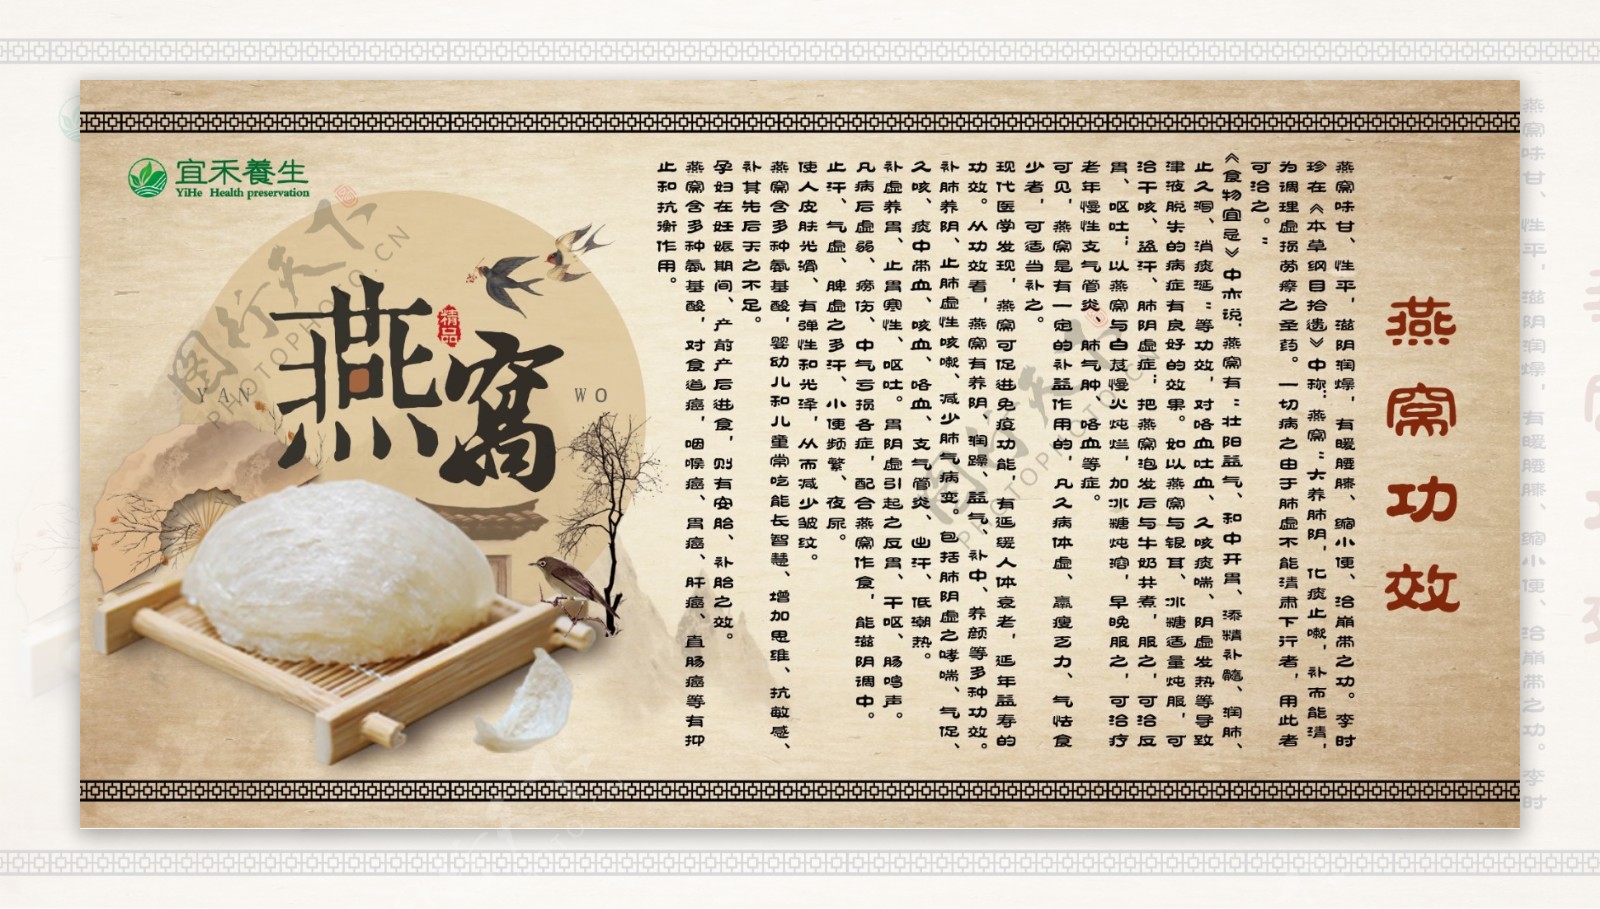 宜禾養生
YiHe Health preservation
燕窝
精品
YAN
WO
燕窝功效
燕窝味甘、性平，滋阴润燥，有暖腰膝、缩小便、治崩带之功。李时
珍在《本草纲目拾遗》中称：燕窝“大养肺阴，化痰止嗽，补而能清，
为调理虚损痨瘵之圣药。一切病之由于肺虚不能清肃下行者，用此者
可治之。”
《食物宜忌》中亦说，燕窝有“壮阳益气、和中开胃、添精补髓、润肺、
止久泻、消痰涎”等功效，对咯血吐血、久咳痰喘、阴虚发热等导致
津液脱失的病症有良好的效果。如以燕窝与银耳、冰糖适量炖服，可
治干咳、盗汗、肺阴虚症；把燕窝泡发后与牛奶共煮，服之，可治反
胃、呕吐；以燕窝与白芨慢火炖烂，加冰糖炖溶，早晚服之，可治疗
老年慢性支气管炎、肺气肿、咯血等症。
可见，燕窝是有一定的补益作用的，凡久病体虚、羸瘦乏力、气怯食
少者，可适当补之。
现代医学发现，燕窝可促进免疫功能，有延缓人体衰老，延年益寿的
功效。从功效看，燕窝有养阴、润躁、益气、补中、养颜等多种功效。
补肺养阴、止肺虚性咳嗽、减少肺气病变。包括肺阴虚之哮喘、气促、
久咳、痰中带血、咳血、咯血、支气管炎、出汗、低潮热。
补虚养胃、止胃寒性、呕吐。胃阴虚引起之反胃、干呕、肠鸣声。
凡病后虚弱、痨伤、中气亏损各症，配合燕窝作食，能滋阴调中。
止汗、气虚、脾虚之多汗、小便频繁、夜尿。
使人皮肤光滑、有弹性和光泽，从而减少皱纹。
燕窝含多种氨基酸，婴幼儿和儿童常吃能长智慧、增加思维、抗敏感、
补其先后天之不足。
孕妇在妊娠期间、产前产后进食，则有安胎、补胎之效。
燕窝含多种氨基酸，对食道癌，咽喉癌、胃癌、肝癌、直肠癌等有抑
止和抗衡作用。